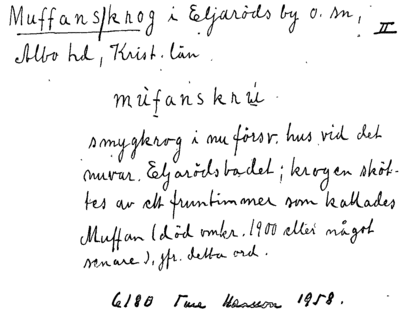 Muffans/krog i Eljaröds by o. sn, II
Albo hd, Krist. län.
mùfanskrú
smygkrog i nu försv. hus vid det
nuvar. Eljarödsbadet; krogen sköt-
tes av ett fruntimmer som kallades
Muffan (död omkr. 1900 eller något
senare), jfr. detta ord.
6180 Ture 1958.